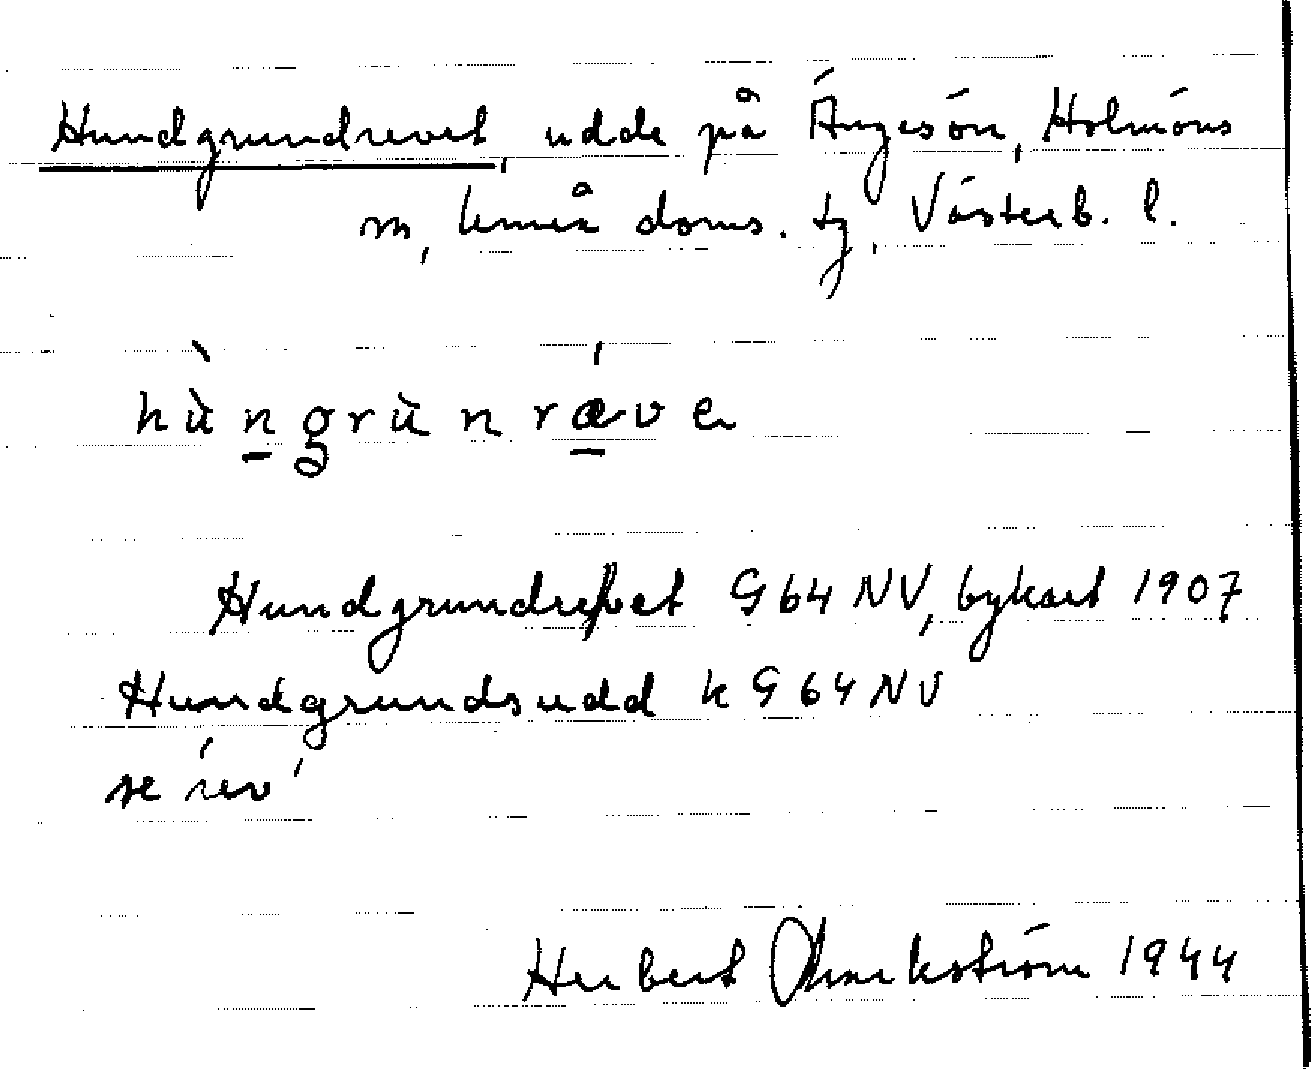 Hundgrundrevet, udde på Ängesön, Holmöns
sn, Umeå doms. tg, Västerb. l.
hùngrùnrǽve
Hundgrundrevet G64NV, bykart 1907
Hundgrundsudd k G64NV
se 'rev'
Herbert 1944